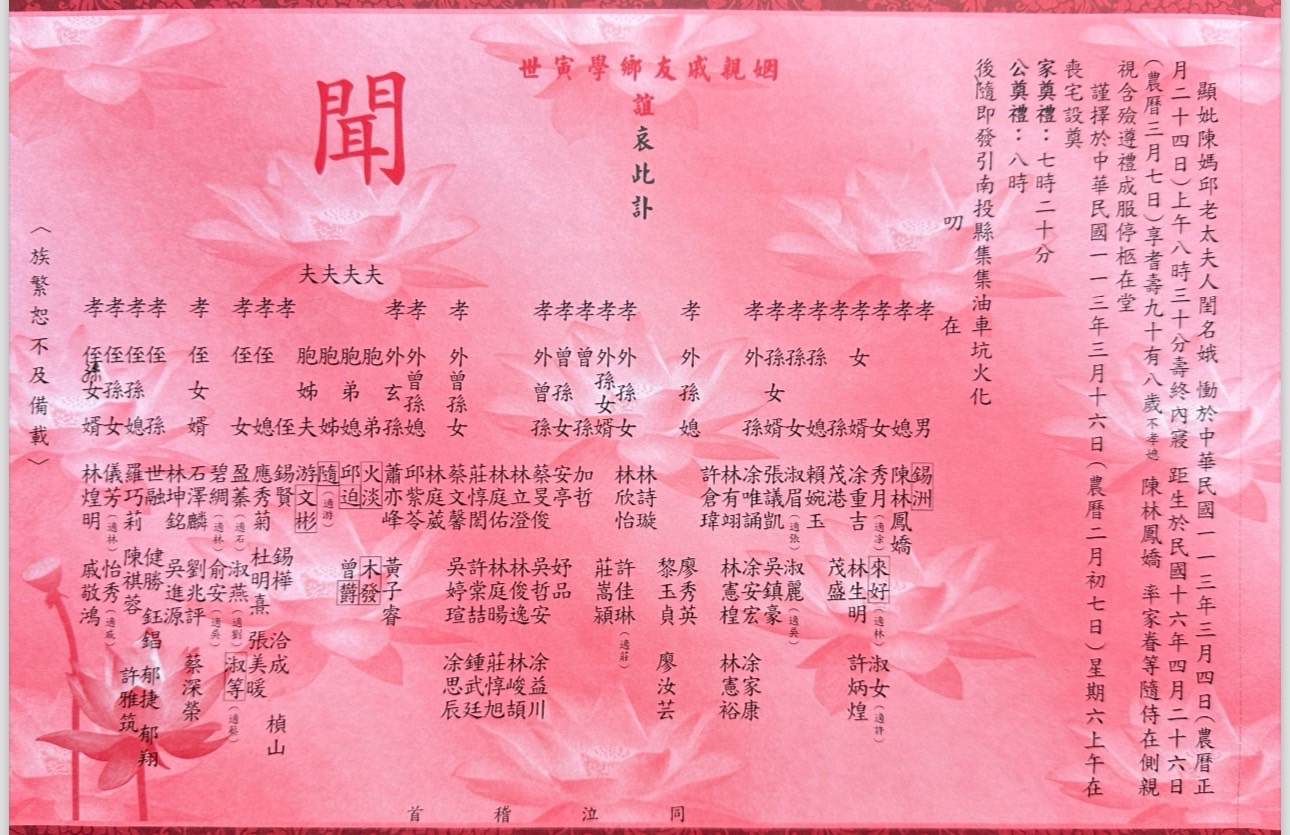 顯妣陳媽邱老太夫人閨名娥 慟於中華民國一一三年三月四日(農曆正
月二十四日)上午八時三十分壽終內寢 距生於民國十六年四月二十六日
(農曆三月七日)享耆壽九十有八歲不孝媳 陳林鳳嬌 率家眷等隨侍在側親
視含殮遵禮成服停柩在堂
謹擇於中華民國一一三年三月十六日(農曆二月初七日)星期六上午在
喪宅設奠
家奠禮:七時二十分
公奠禮:八時
後隨即發引南投縣集集油車坑火化
叨 在
姻親戚友鄉學寅世
誼哀此訃
聞
孝男 錫洲
孝媳 陳林鳳嬌
孝女 秀月(適凃) 來好(適林) 淑女(適許)
孝女婿 凃重吉 林生明 許炳煌
孝孫 茂港 茂盛
孝孫媳 賴婉玉
孝孫女 淑眉(適張) 淑麗(適吳)
孝孫女婿 張議凱 吳鎮豪
孝外孫 凃唯誦 凃安宏 凃家康
林有翊 林憲楻 林憲裕
許倉瑋
孝外孫媳 廖秀英
黎玉貞 廖汝芸
孝外孫女 林詩璇 許佳琳(適莊)
孝外孫女婿 林欣怡 莊嵩潁
孝曾孫 加哲
孝曾孫女 安亭 妤品
孝外曾孫 蔡旻俊 吳哲安 凃益川
林立澄 林俊逸 林峻頡
林庭佑 林庭暘 莊惇旭
莊惇閎 許棠喆 鍾武廷
孝外曾孫女 蔡文馨 吳婷瑄 凃思辰
林庭葳
孝外曾孫媳 邱紫苓
孝外玄孫 蕭亦峰 黃子睿
夫胞弟 火淡 木發
夫胞弟媳 邱迫 曾爵
夫胞姊 隨(適游)
夫胞姊夫 游文彬
孝侄 錫賢 錫樺 洽成 楨山
孝侄媳 應秀菊 杜明熹 張美暖
孝侄女 盈蓁(適石) 淑燕(適劉) 淑等(適蔡)
碧綢(適林) 俞安(適吳)
孝侄女婿 石澤麟 劉兆評 蔡深榮
林坤銘 吳進源
孝侄孫 世融 健勝 鈺錩 郁捷 郁翔
孝侄孫媳 羅巧莉 陳祺蓉 許雅筑
孝侄孫女 儀芳(適林) 怡秀(適戚)
孝侄孫女婿 林煌明 戚敬鴻
〈族繁恕不及備載〉
同泣稽首